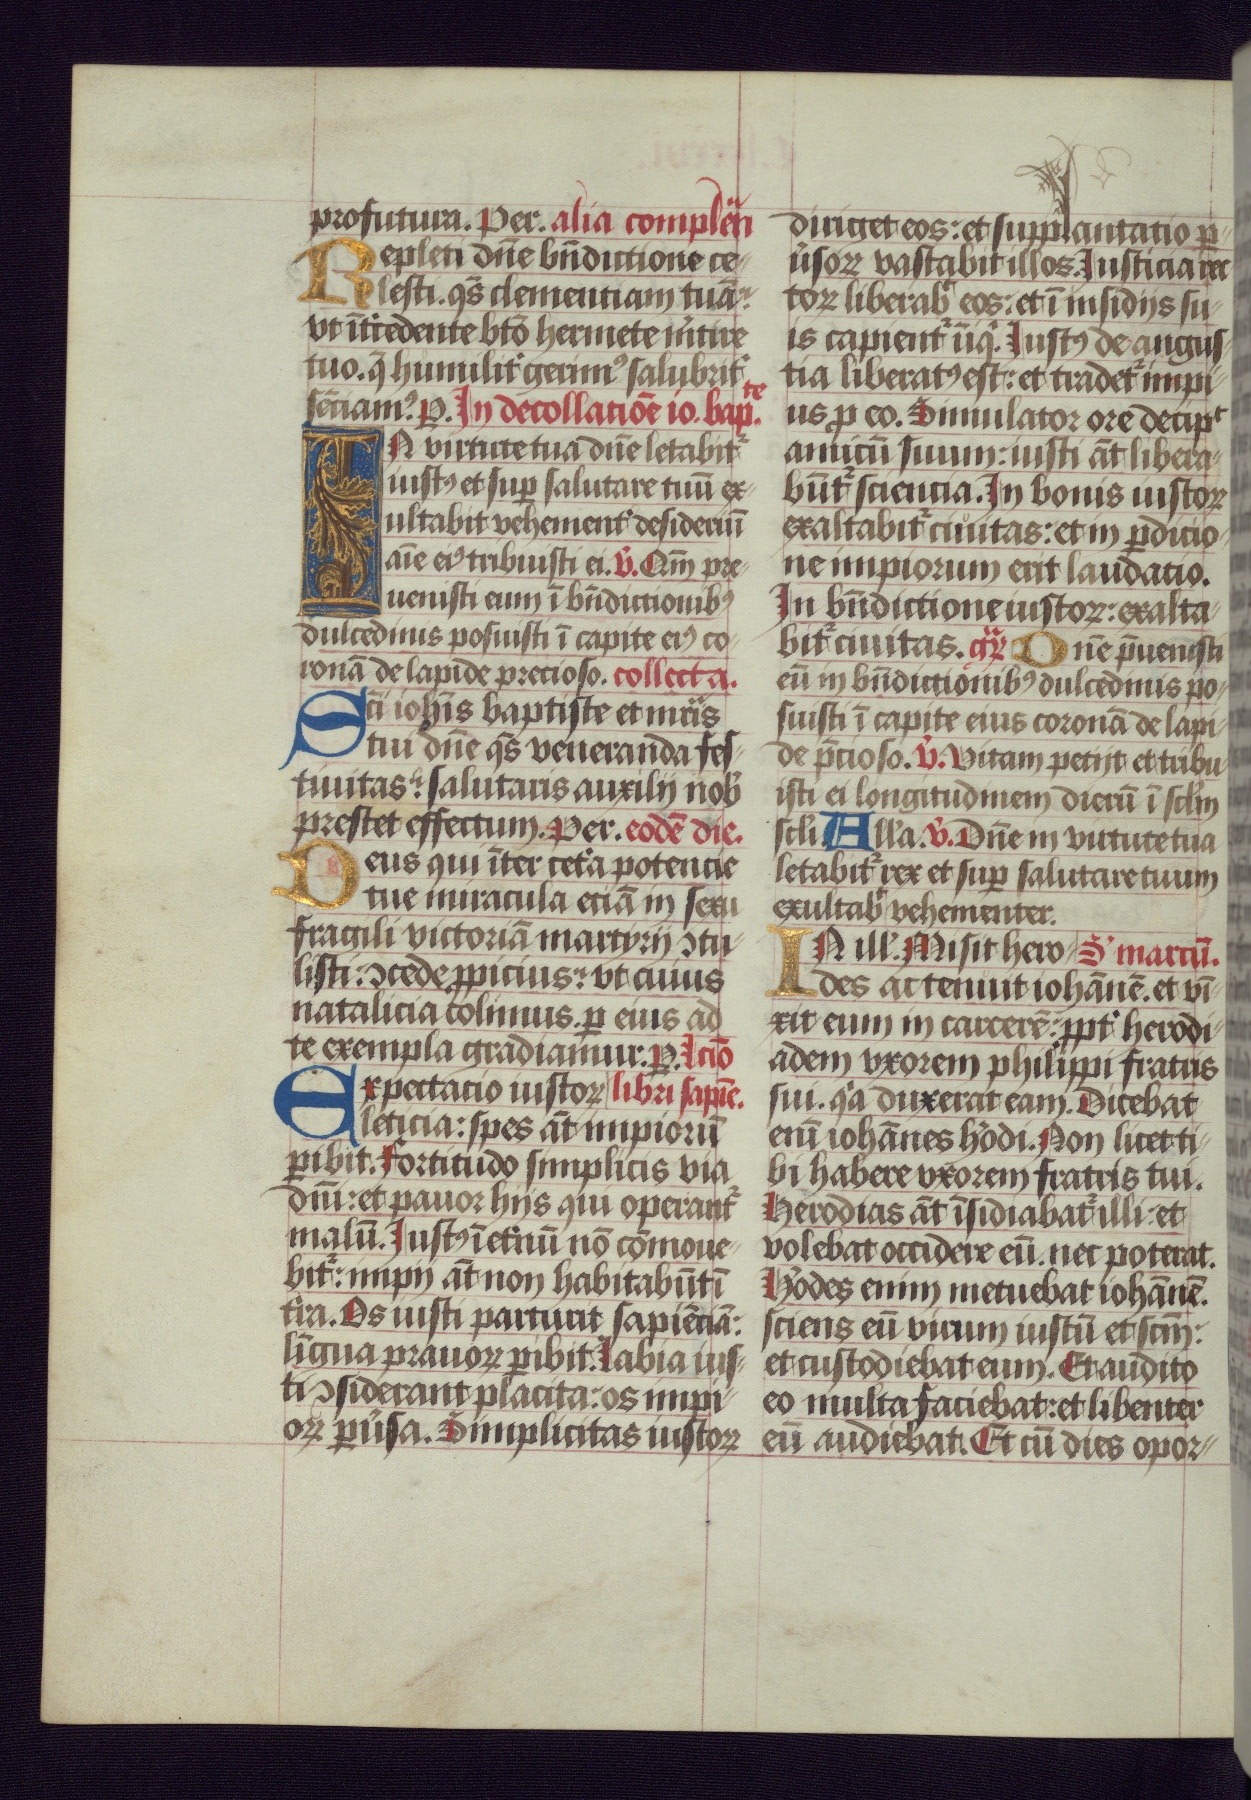 profutura. Per. alia complēn
Repleti dn̄e bn̄dictione ce-
lesti. qs̄ clementiam tuā:
vt īt̄cedente btō hermete m̄tire
tuo. q̄ humilit̄ gerim⁹ salubrit̄
sēciam⁹. P. In decollatiōe io. bap.te
IN virtute tua dn̄e letabit᷑
iust⁹ et sup̄ salutare tuū ex-
ultabit vehement̄ desideriū
aīe ei⁹ tribuisti ei. v̄. Qm̄ pre-
uenisti eum ī bn̄dictionib⁹
dulcedinis posuisti ī capite ei⁹ co-
ronā de lapide precioso. collecta.
Sc̄i ioh̄is baptiste et mr̄is
tui dn̄e qs̄ veneranda fes-
tiuitas: salutaris auxilij nob̄
prestet effectum. Per. eodē die.
Deus qui īter cet̄a potencie
tue miracula eciā in sexu
fragili victoriā martyrij ꝯtu-
listi: ꝯcede ꝓpicius: vt cuius
natalicia colimus. ꝑ eius ad
te exempla gradiamur. P. lc̄io
Expectacio iustoꝝ libri sapiē.
leticia: spes āt impiorū
ꝑibit. Fortitudo simplicis via
dn̄i: et pavor hijs qui operant᷑
malū. Iust⁹ īet̄nū nō cōmoue-
bit᷑: impij āt non habitabūt ī
t̄ra. Os iusti parturit sapiēciā:
līgua prauoꝝ ꝑibit. Labia ius-
ti ꝯsiderant placita: os impi-
oꝝ ꝑu̇sa. Simplicitas iustoꝝ
diriget eos: et supplantatio ꝑ-
u̇soꝝ vastabit illos. Iusticia rec
toꝝ liberab᷑ eos: et ī insidijs su-
is capient᷑ īiq᷑. Iust⁹ de angus-
tia liberat⁹ est: et tradet᷑ impi-
us ꝑ eo. Simulator ore decipt̄
amicū suum: iusti āt libera-
būt᷑ sciencia. In bonis iustoꝝ
exaltabit᷑ ciuitas: et in ꝑdicio-
ne impiorum erit laudacio.
In bn̄dictione iustoꝝ: exalta-
bit᷑ ciuitas. gr̄ Dn̄e p̄uenisti
eū in bn̄dictionib⁹ dulcedinis po-
suisti ī capite eius coronā de lapi-
de p̄cioso. v̄. Vitam petijt et tribu
isti ei longitudinem dierū ī sclm̄
scli. All'a. v̄. Dn̄e in virtute tua
letabit᷑ rex et sup̄ salutare tuum
exultab᷑ vehementer.
IN ill'. Misit hero- S' marcū.
des ac tenuit iohānē. et vī-
xit eum in carcerē: ꝓpt̄ herodi-
adem vxorem philippi fratris
sui. qͥa duxerat eam. Dicebat
enī iohānes h̄odi. Non licet ti-
bi habere vxorem fratris tui.
Herodias āt īsidiabat᷑ illi: et
volebat occidere eū. nec poterat.
H̄odes enim metuebat iohānē.
sciens eū virum iustū et scm̄:
et custodiebat eum. Et audito
eo multa faciebat: et libenter
eū audiebat. Et cū dies opor-